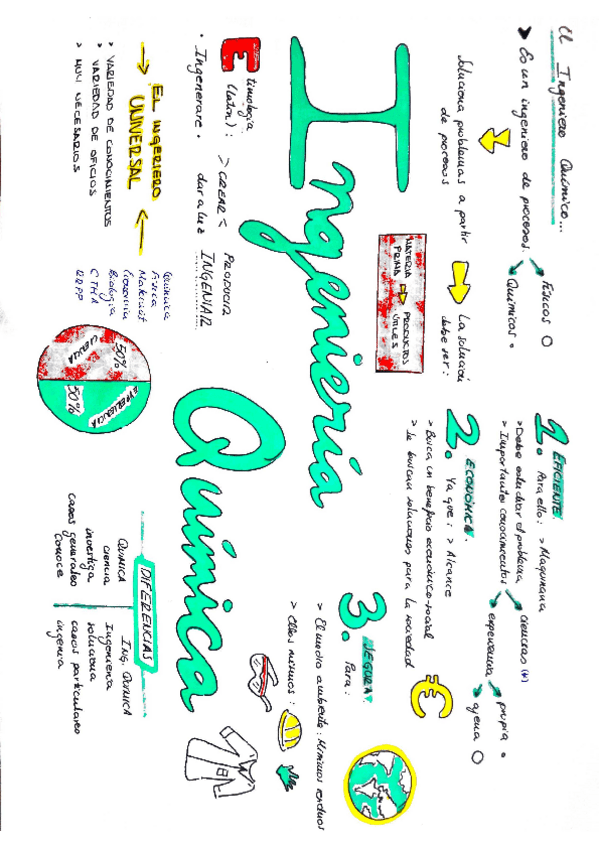 El Ingeniero Químico...
> Es un ingeniero de procesos.
Físicos
Químicos
Soluciona problemas a partir
de procesos
MATERIA
PRIMA
PRODUCTOS
ÚTILES
La solución
debe ser:
1. EFICIENTE.
Para ello: > Maquinaria
> Debe estudiar el problema
> Importantes conocimientos
ciencias
experiencia
propia
ajena
2. ECONÓMICA.
Ya que: > Alcance
> Busca un beneficio económico-social
> Se buscan soluciones para la sociedad
€
3. SEGURA.
Para:
> El medio ambiente: Mínimos residuos
> Ellos mismos:
Ingeniería
Química
Etimología
(Latín):
• Ingenerare.
> CREAR <
dar a luz
PRODUCIR
INGENIAR
EL INGENIERO
UNIVERSAL
> VARIEDAD DE CONOCIMIENTOS
> VARIEDAD DE OFICIOS
> MUY NECESARIOS
Química
Física
Biología
CTMA
RRPP
50%
CIENCIA
50%
EXPERIENCIA
DIFERENCIAS
QUÍMICA
ciencia
investiga
casos generales
conoce
ING. QUÍMICA
Ingeniería
soluciona
casos particulares
ingenia